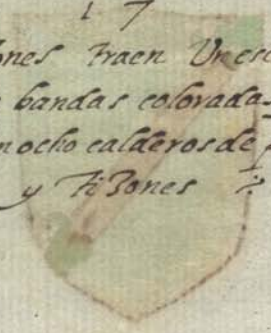 1 7
ones traen Un esc
bandas coloradas
n ocho calderos de
y tiZones